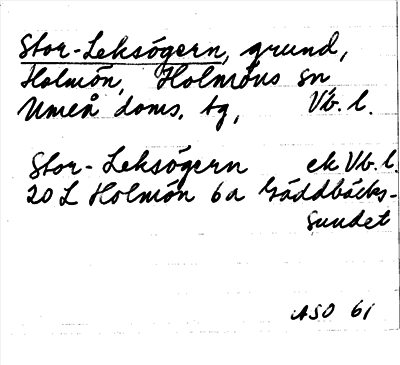 Stor-Leksögern, grund,
Holmön, Holmöns sn,
Umeå doms. tg, Vb. l.
Stor-Leksögern ek Vb. l.
20 L Holmön 6a Gäddbäcks-
sundet
ASO 61